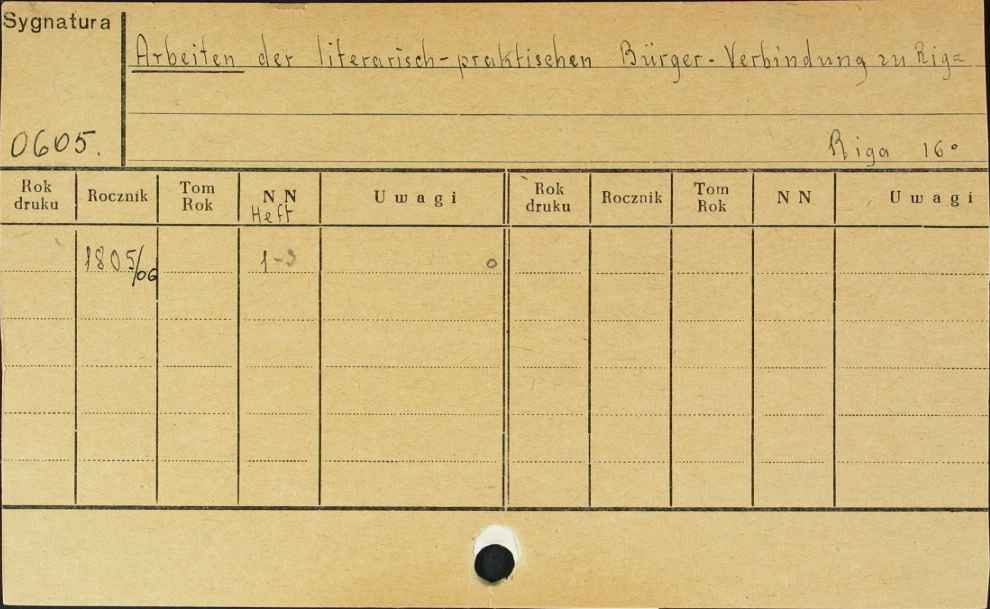 Sygnatura
Arbeiten der literarisch-praktischen Bürger-Verbindung zu Riga
0605.
Riga 16°
Rok druku Rocznik Tom Rok NN Heft Uwagi Rok druku Rocznik Tom Rok NN Uwagi
1805/06 1-3 o